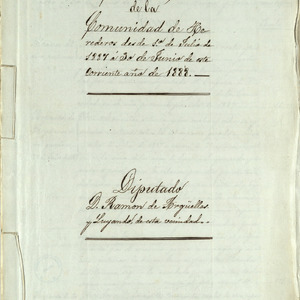 de la
Comunidad de He-
rederos desde 1º de Julio de
1887 á 30 de Junio de este
corriente año de 1888.
Diputado
D. Ramon de Argüelles
y Leyando, de esta comunidad.